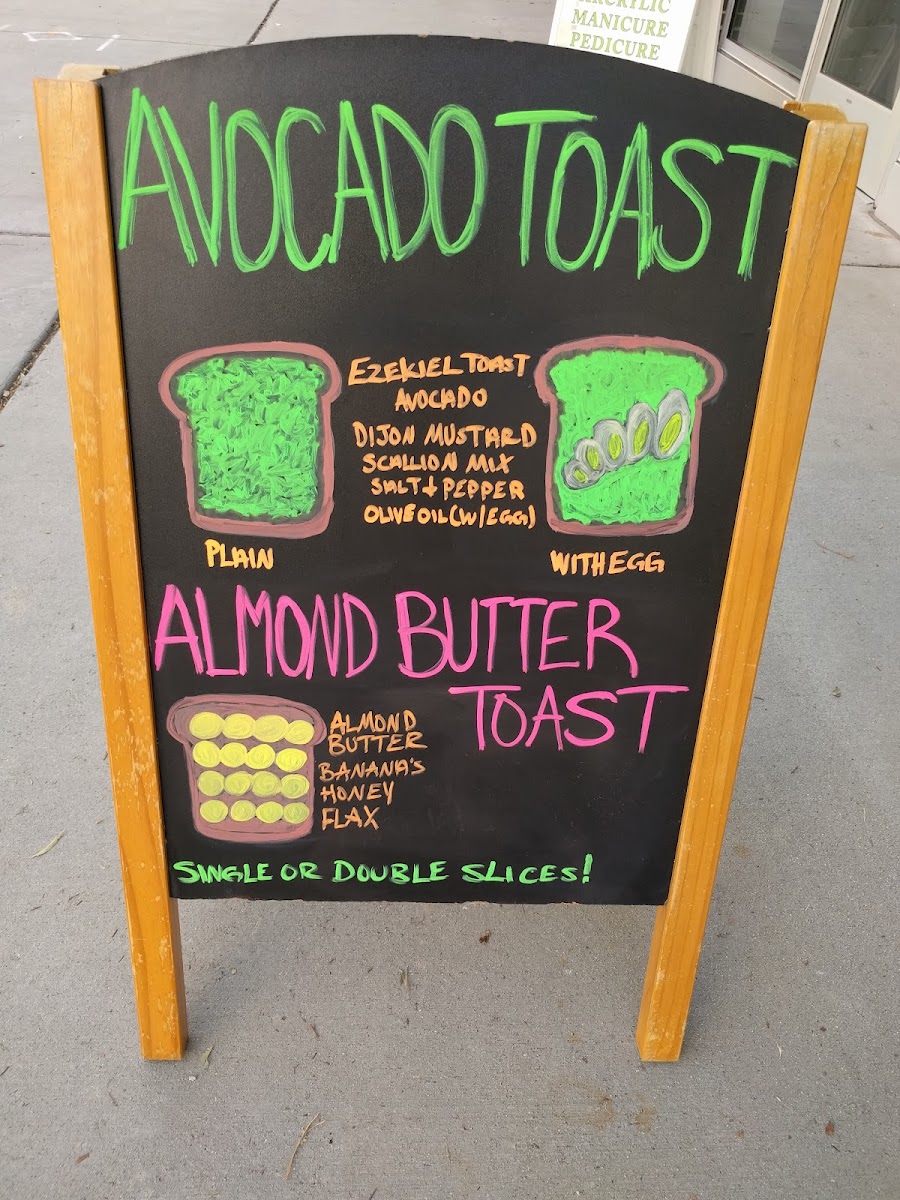 MANICURE
PEDICURE
AVOCADO TOAST
EZEKIEL TOAST
AVOCADO
DIJON MUSTARD
SCALLION MIX
SALT + PEPPER
OLIVE OIL (W/EGG)
PLAIN
WITH EGG
ALMOND BUTTER
TOAST
ALMOND
BUTTER
BANANA'S
HONEY
FLAX
SINGLE OR DOUBLE SLICES!